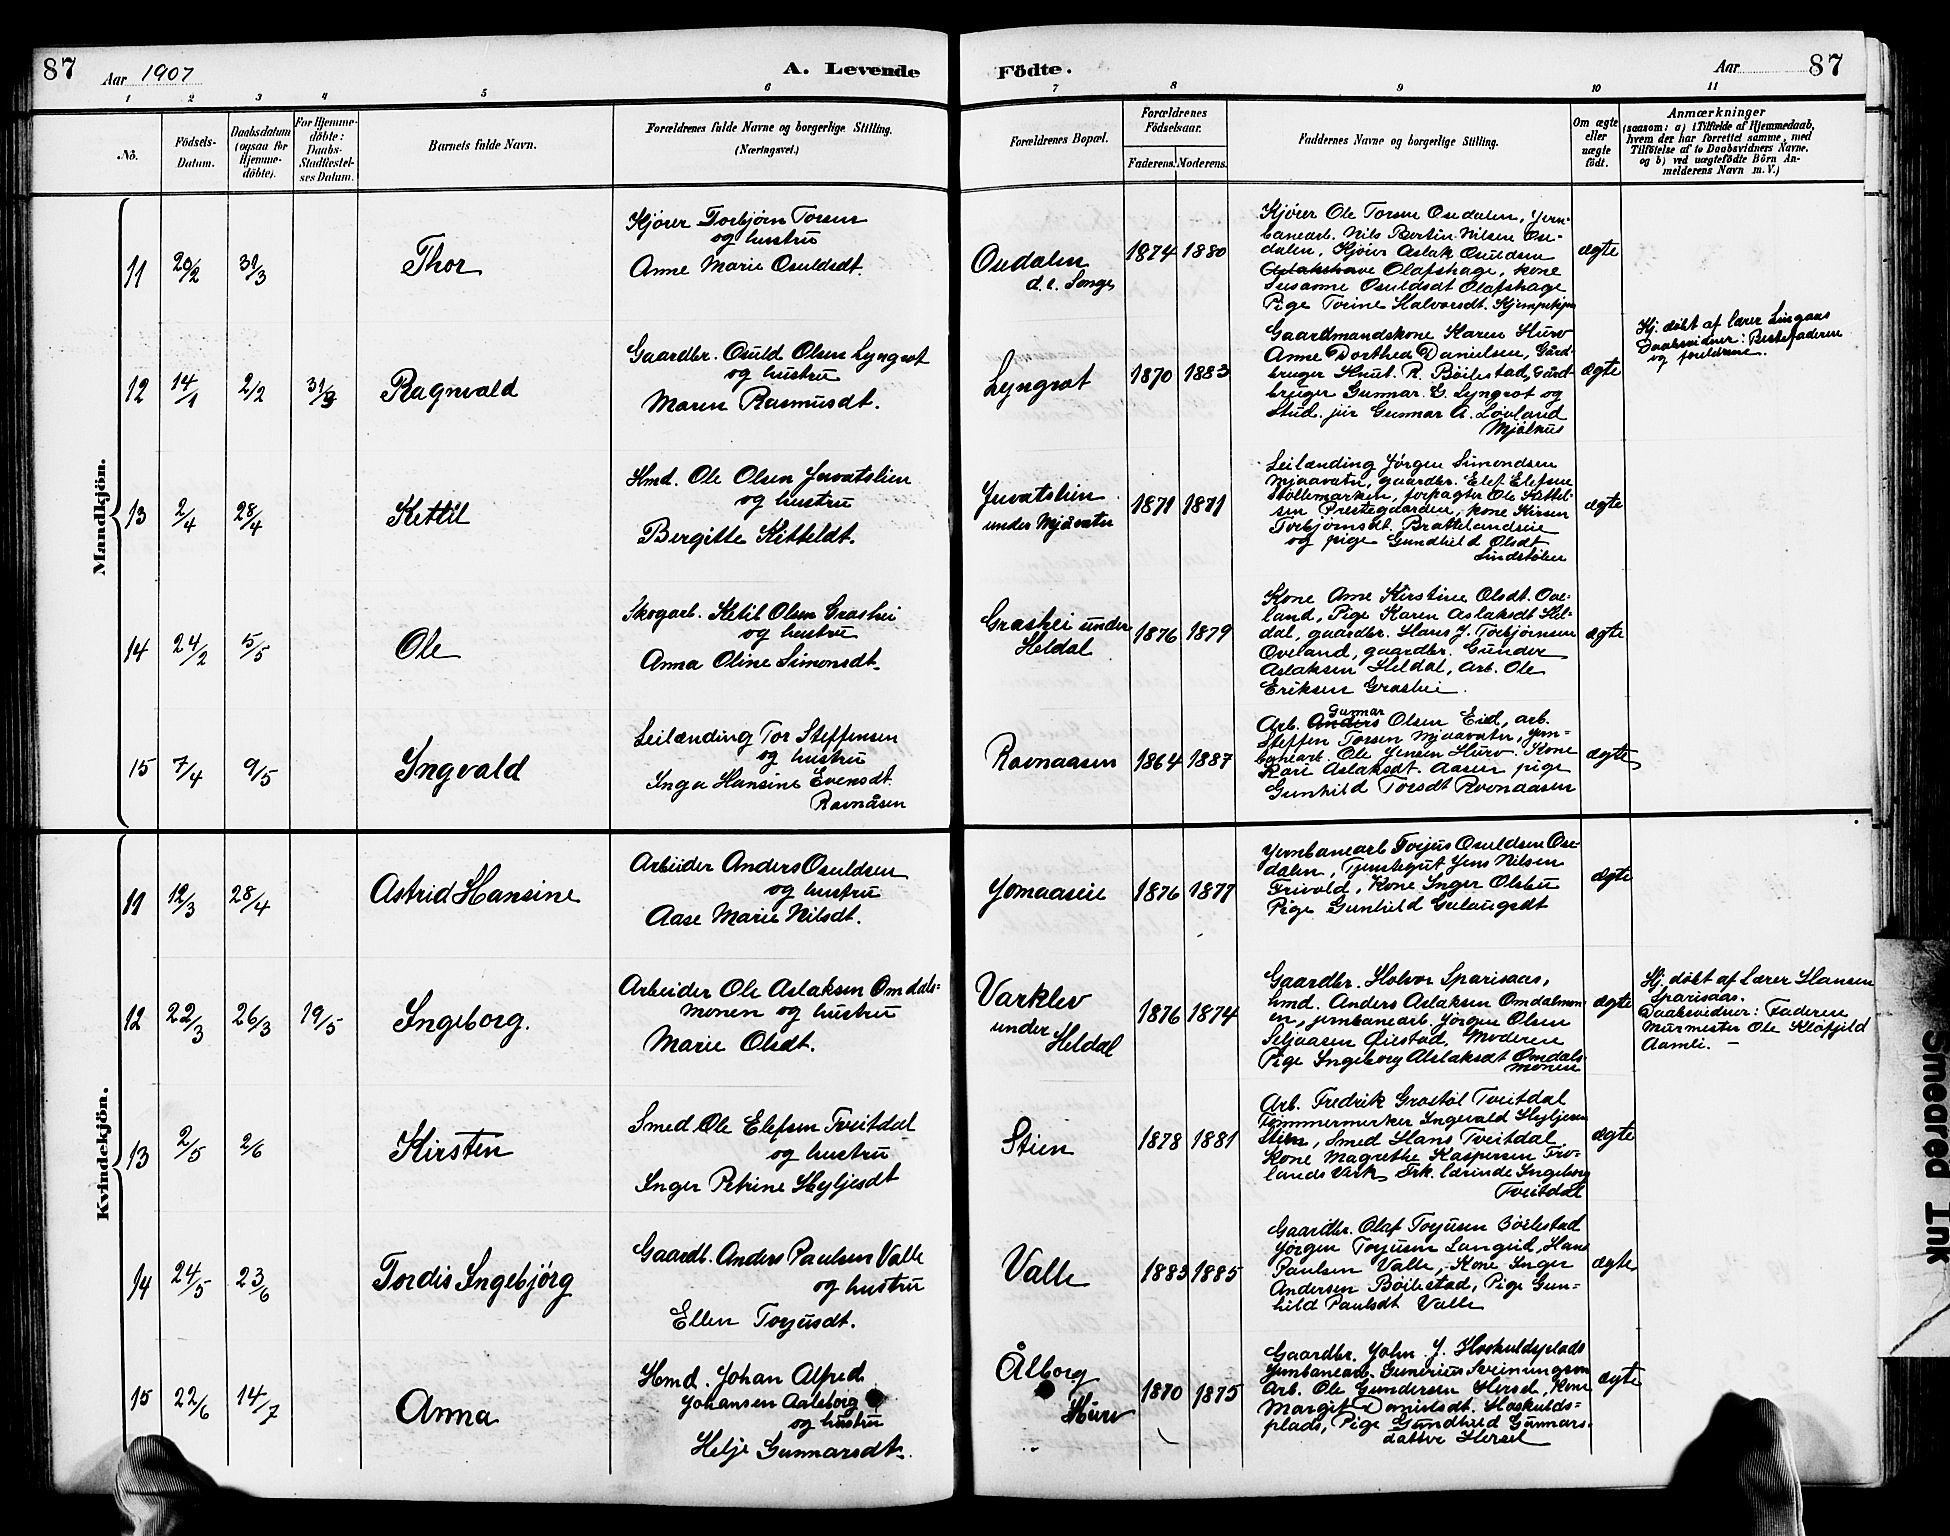 87 Aar 1907 A. Levende Födte. Aar 87
1 2 3 4 5 6 7 8 9 10 11
No. Födsels-Datum. Daabsdatum (ogsaa for Hjemmedöbte). For Hjemmedöbte: Daabs-Stadfæstelses Datum. Barnets fulde Navn. Forældrenes fulde Navne og borgerlige Stilling. (Næringsvei.) Forældrenes Bopæl. Forældrenes Födselsaar. Faderens. Moderens. Faddernes Navne og borgerlige Stilling. Om ægte eller uægte födt. Anmærkninger
(saasom: a) i Tilfælde af Hjemmedaab,
hvem der har forrettet samme, med
Tilföielse af to Daabsvidners Navne.
og b) ved uægtefödte Börn An-
melderens Navn m. V.)
Mandkjön.
11 20/2 31/3 Thor
Kjører Torbjørn Torsen
og hustru
Anne Marie Osuldsdt.
Osedalen
d. e. Songe
1874 1880
Kjører Ole Torsen Osedalen, Jern-
banearb. Nils Bertin Nilsen Ose-
dalen, Kjører Aslak Osuldsen
Olafshage, kone
Susanne Osuldsdt Olafshage
Pige Torine Halvorsdt.
ægte
12 14/1 2/2 31/3 Ragnvald
Gaardbr. Osuld Olsen Lyngrot
og hustru
Maren Rasmusdt.
Lyngrot
1870 1883
Gaardmandskone Karen Hurv
Anne Dorthea Danielsen, Gård-
bruger Knut R. Böilestad, Gård-
bruger Gunnar E. Lyngrot og
Stud. jur Gunnar A. Løvland
Mjölhus
ægte
Hj. döbt af lærer Lingaas
Daabsvidner: Bestefaderen
og forældrene.
13 2/4 28/4 Kettil
Hmd. Ole Olsen Juvatslien
og hustru
Bergitte Kitteldt.
Juvatslien
under Mjåvatn
1871 1871
Leilænding Jørgen Simondsen
Mjaavatn, gaardbr. Elef Elefsen
Stöllemarken, forpagter Ole Kittel-
sen Prestegaarden, kone Kirsen
Torbjørnsdt. Brattelandseie
og pige Gundhild Olsdt
Lindstølen
ægte
14 24/2 5/5 Ole
Skogarb. Ketil Olsen Grashei
og hustru
Anna Oline Simonsdt.
Grashei under
Heldal
1876 1879
Kone Ane Kirstine Olsdt. Ove-
land, Pige Karen Aslaksdt Hel-
dal, gaardbr. Hans J. Torbjörnsen
Oveland, gaardbr. Gunder
Aslaksen Heldal, arb. Ole
Eriksen Grashei.
ægte
15 7/4 9/5 Ingvald
Leilænding Tor Steffensen
og hustru
Inga Hansine Evensdt.
Ravnåsen
Ravnaasen
1864 1887
Gunnar
Arb. Anders Olsen Eid, arb.
Steffen Torsen Mjaavatn, jern-
banearb. Ole Jensen Hurv. Kone
Kari Aslaksdt. Aasen pige
Gunhild Torsdt Ravnaasen
ægte
Kvindekjön.
11 12/3 28/4 Astrid Hansine
Arbeider Anders Osuldsen
og hustru
Aase Marie Nilsdt.
Jomaaseie
1876 1877
Jernbanearb Torjus Osuldsen Ose-
dalen, Tjenstegut Jens Nilsen
Frivold, Kone Inger Olsbu
Pige Gunhild Gulaugsdt
ægte
12 22/3 26/3 19/5 Ingeborg.
Arbeider Ole Aslaksen Omdals-
monen og hustru
Marie Olsdt.
Varklev
under
Heldal
1876 1874
Gaardbr. Halvor Sparisaas,
hmd. Anders Aslaksen Omdalsmon-
en, jernbanearb. Jörgen Olsen
Seljaasen Öiestad, Moderen
Pige Ingeborg Aslaksdt Omdals-
monen
ægte
Hj. döbt af Lærer Hansen
Sparisaas.
Daabsvidner: Faderen
Murmester Ole Klöfjeld
Aamli. –
13 2/5 2/6 Kirsten
Smed Ole Elefsen Tveitdal
og hustru
Inger Petrine Hyljesdt
Stien
1878 1881
Arb. Fredrik Grostöl Tveitdal
Tømmermerker Ingevald Hyljesen
Stien, Smed Hans Tveitdal
Kone Magrethe Kaspersen Fro-
lands Værk Frk. lærinde Ingeborg
Tveitdal
ægte
14 24/5 23/6 Tordis Ingebjörg
Gaardb. Anders Paulsen Valle
og hustru
Ellen Torjusdt.
Valle
1883 1885
Gaardbr. Olaf Torjusen Böilestad
Jörgen Torjusen Langeid, Hans
Paulsen Valle, Kone Inger
Andersen Böilestad, Pige Gun-
hild Paulsdt Valle
ægte
15 22/6 14/7 Anna
Hmd. Johan Alfred
Johansen Aalborg
og hustru
Helje Gunnarsdt.
Ålborg
Hurv
1870 1875
Gaardbr. John J. Hoskuldsplads
Jernbanearb. Gunerius Sveinungsen
Arb. Ole Gundersen Hersel, Kone
Margit Hoskulds-
plads, Pige Gundhild Gunnars-
datter Hersel
ægte
Smeared Ink